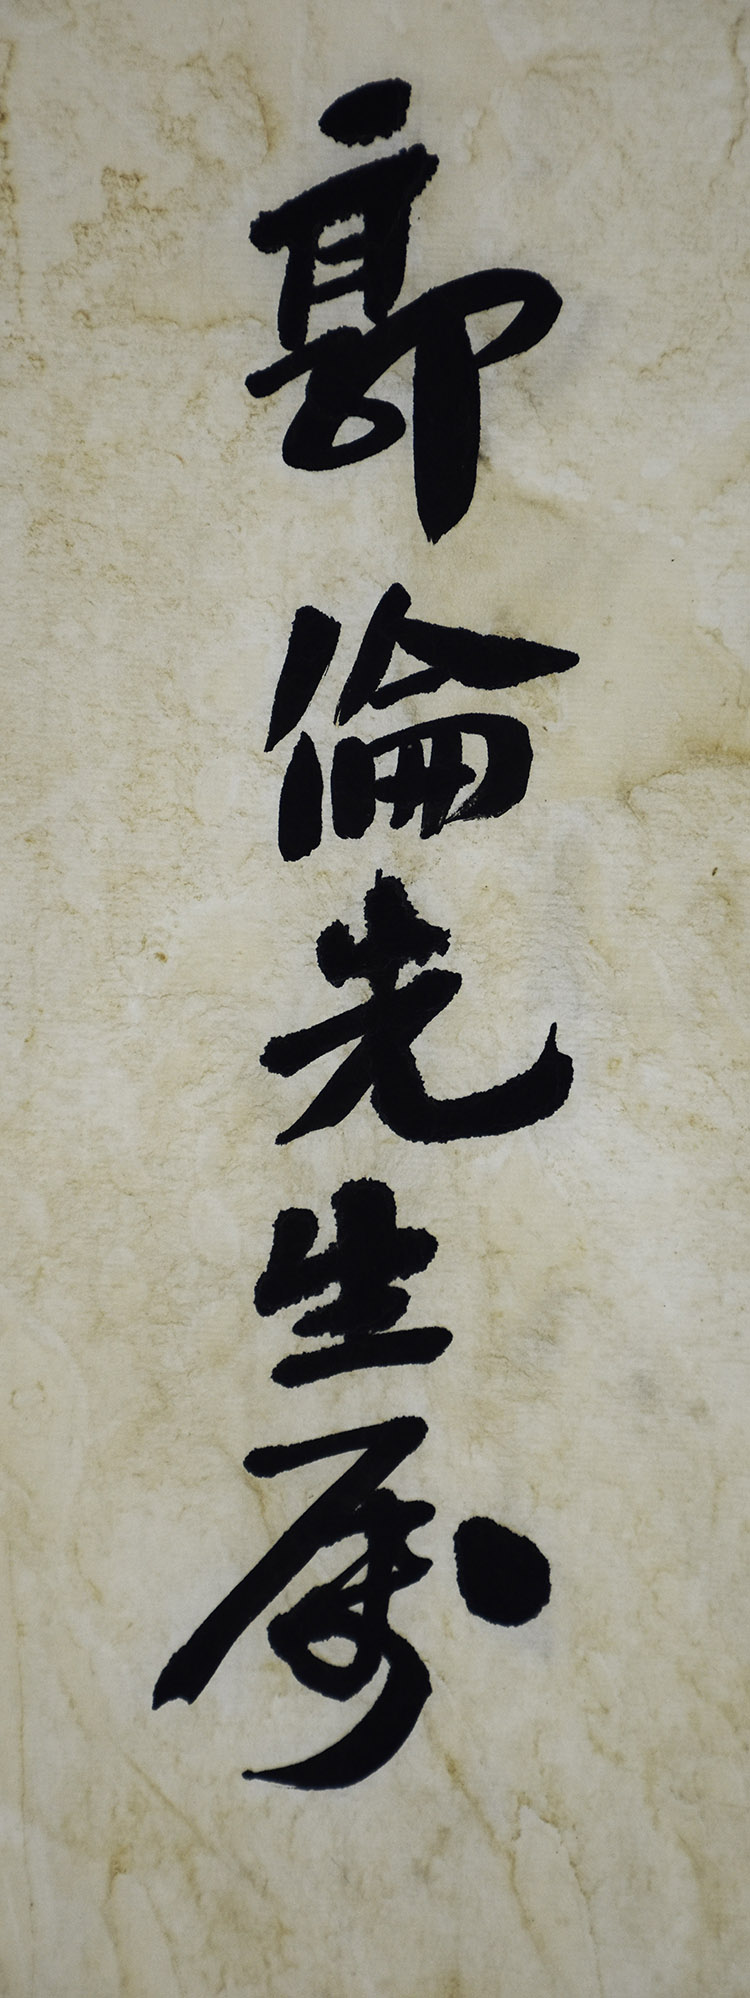 郭倫先生属